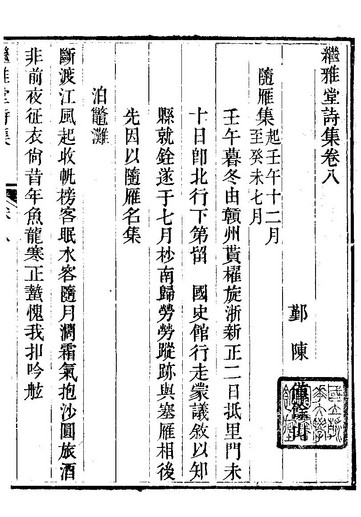 繼雅堂詩集卷八
鄞 陳
隨雁集 起壬午十二月
至癸未七月
壬午暮冬由贛州貰櫂旋浙新正二日抵里門未
十日卽北行下第留 國史館行走蒙議敘以知
縣就銓遂于七月杪南歸勞勞蹤跡與塞雁相後
先因以隨雁名集
泊鼈灘
斷渡江風起收帆榜客眠水容隨月濶霜氣抱沙圓旅酒
非前夜征衣尙昔年魚龍寒正蟄愧我扣吟舷
繼雅堂詩集